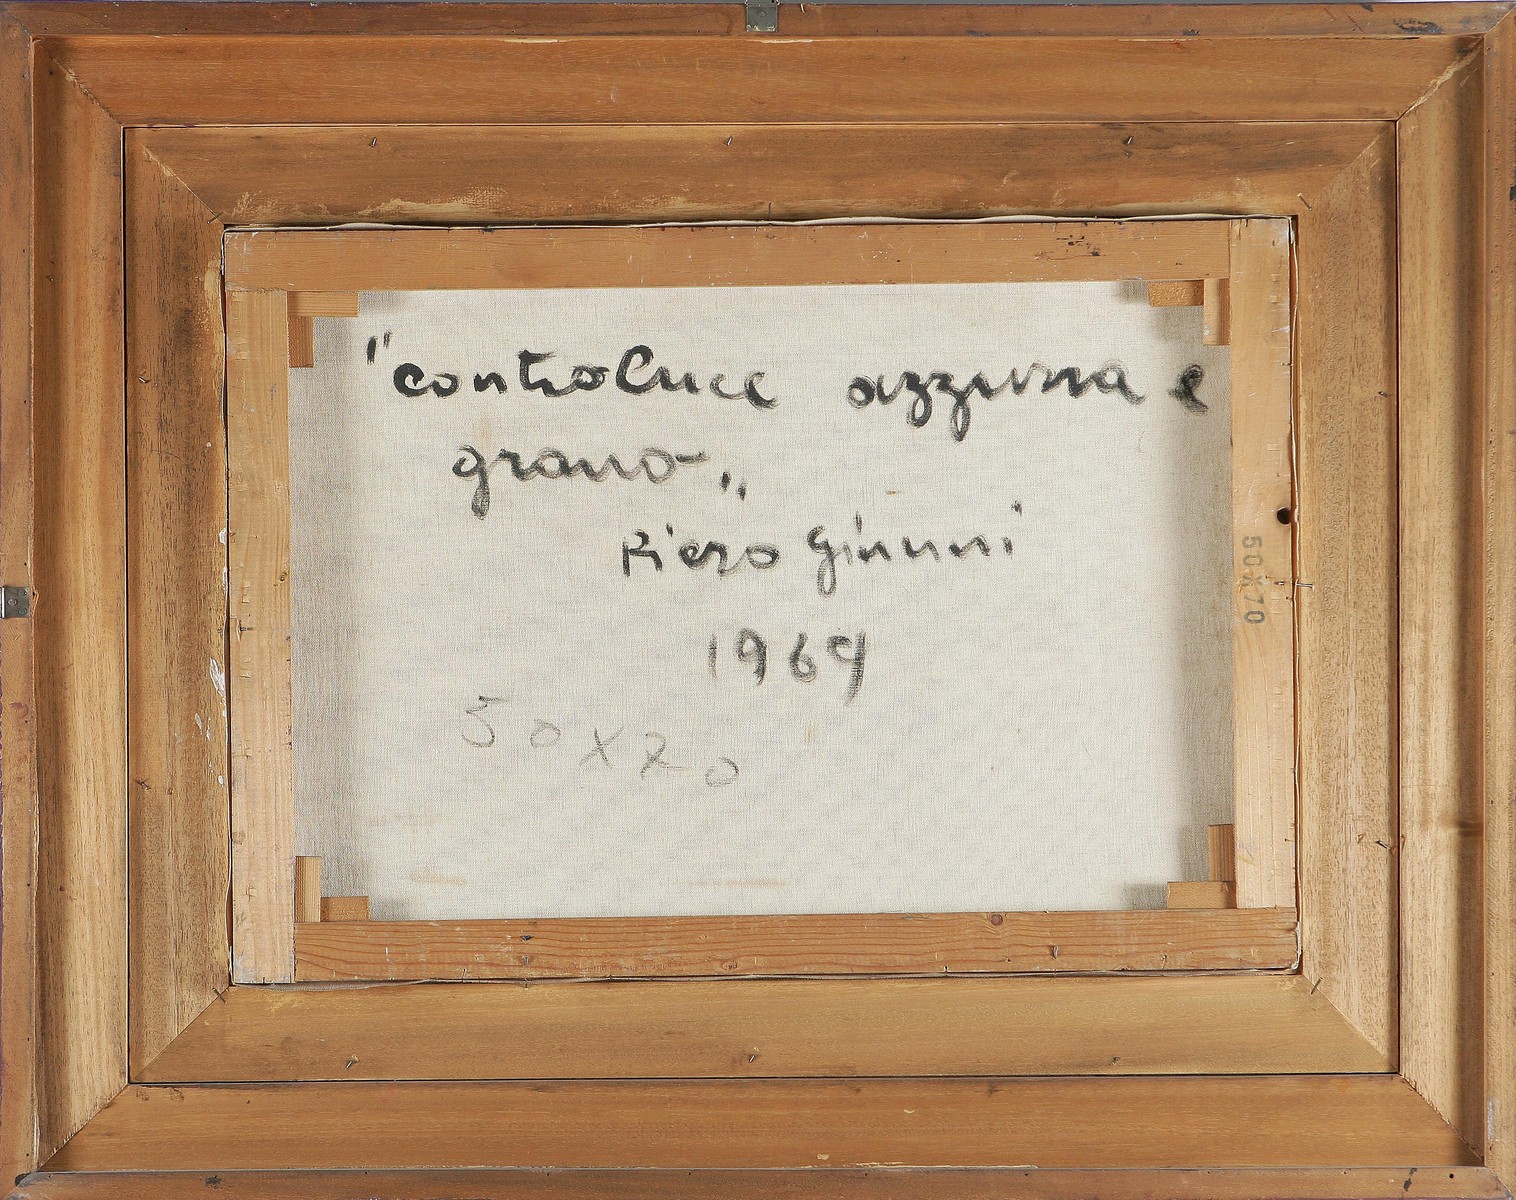 "controluce azzurra e
grano„
Piero Giunni
1969
50x70
50X70